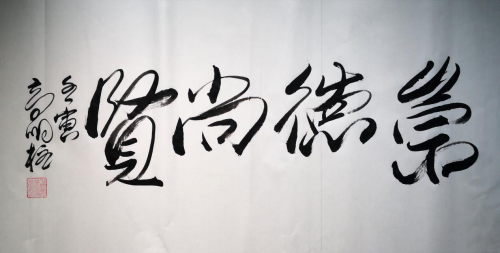 崇德尚贤
壬寅
高明柱